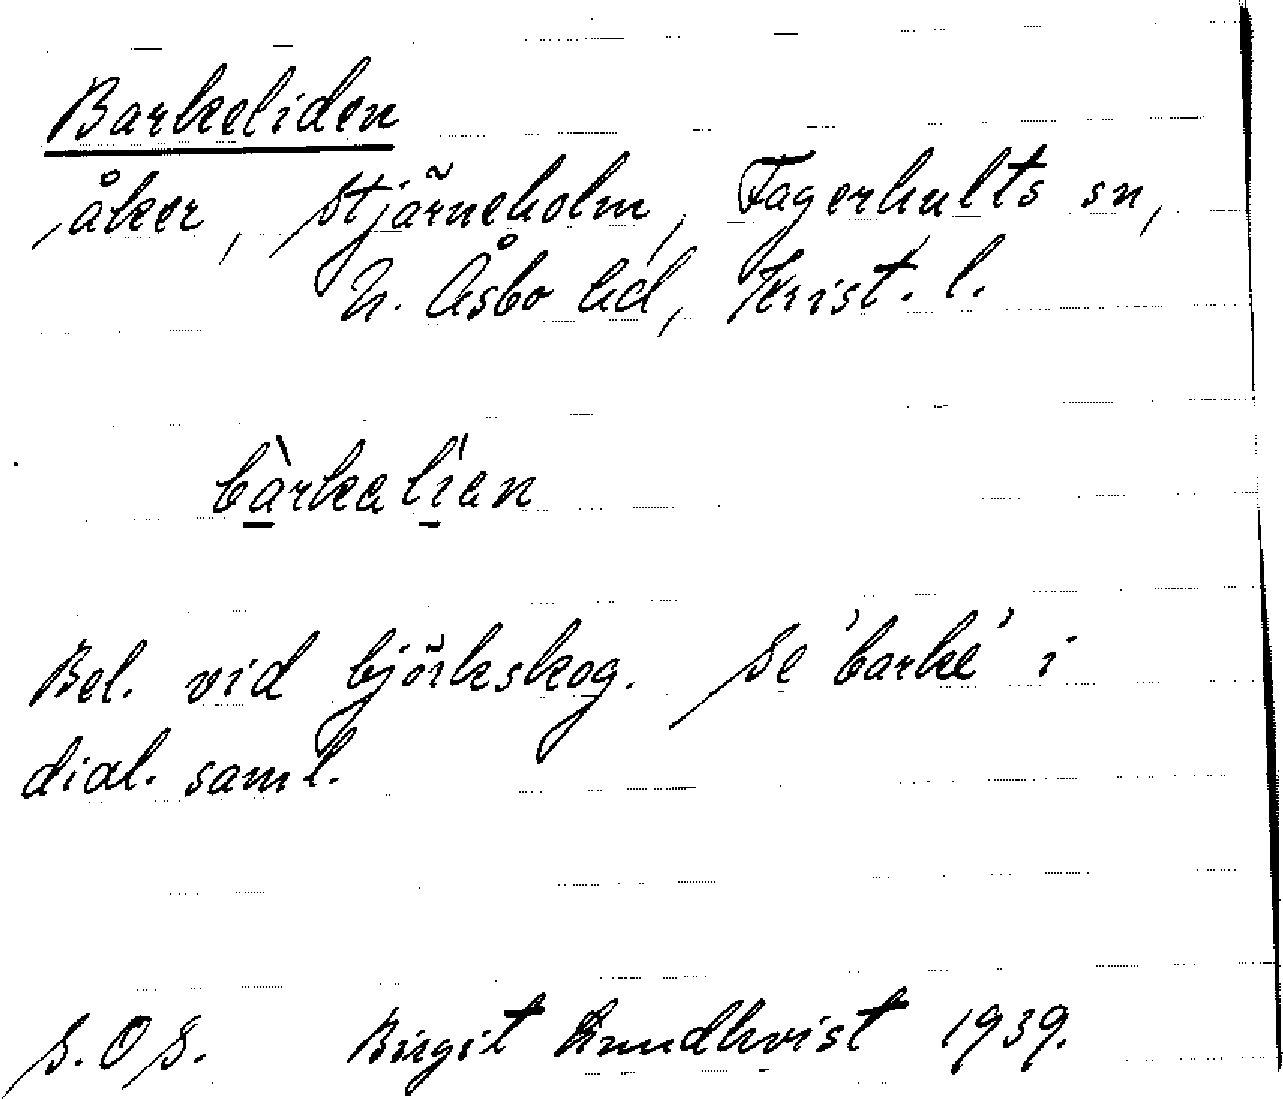 Barkeliden
åker, Stjärneholm, Fagerhults sn,
N. Åsbo hd, Krist. l.
bàrkalíen
Bel. vid björkskog. Se 'barke' i
dial. saml.
S.O.S. Birgit Lundkvist 1939.